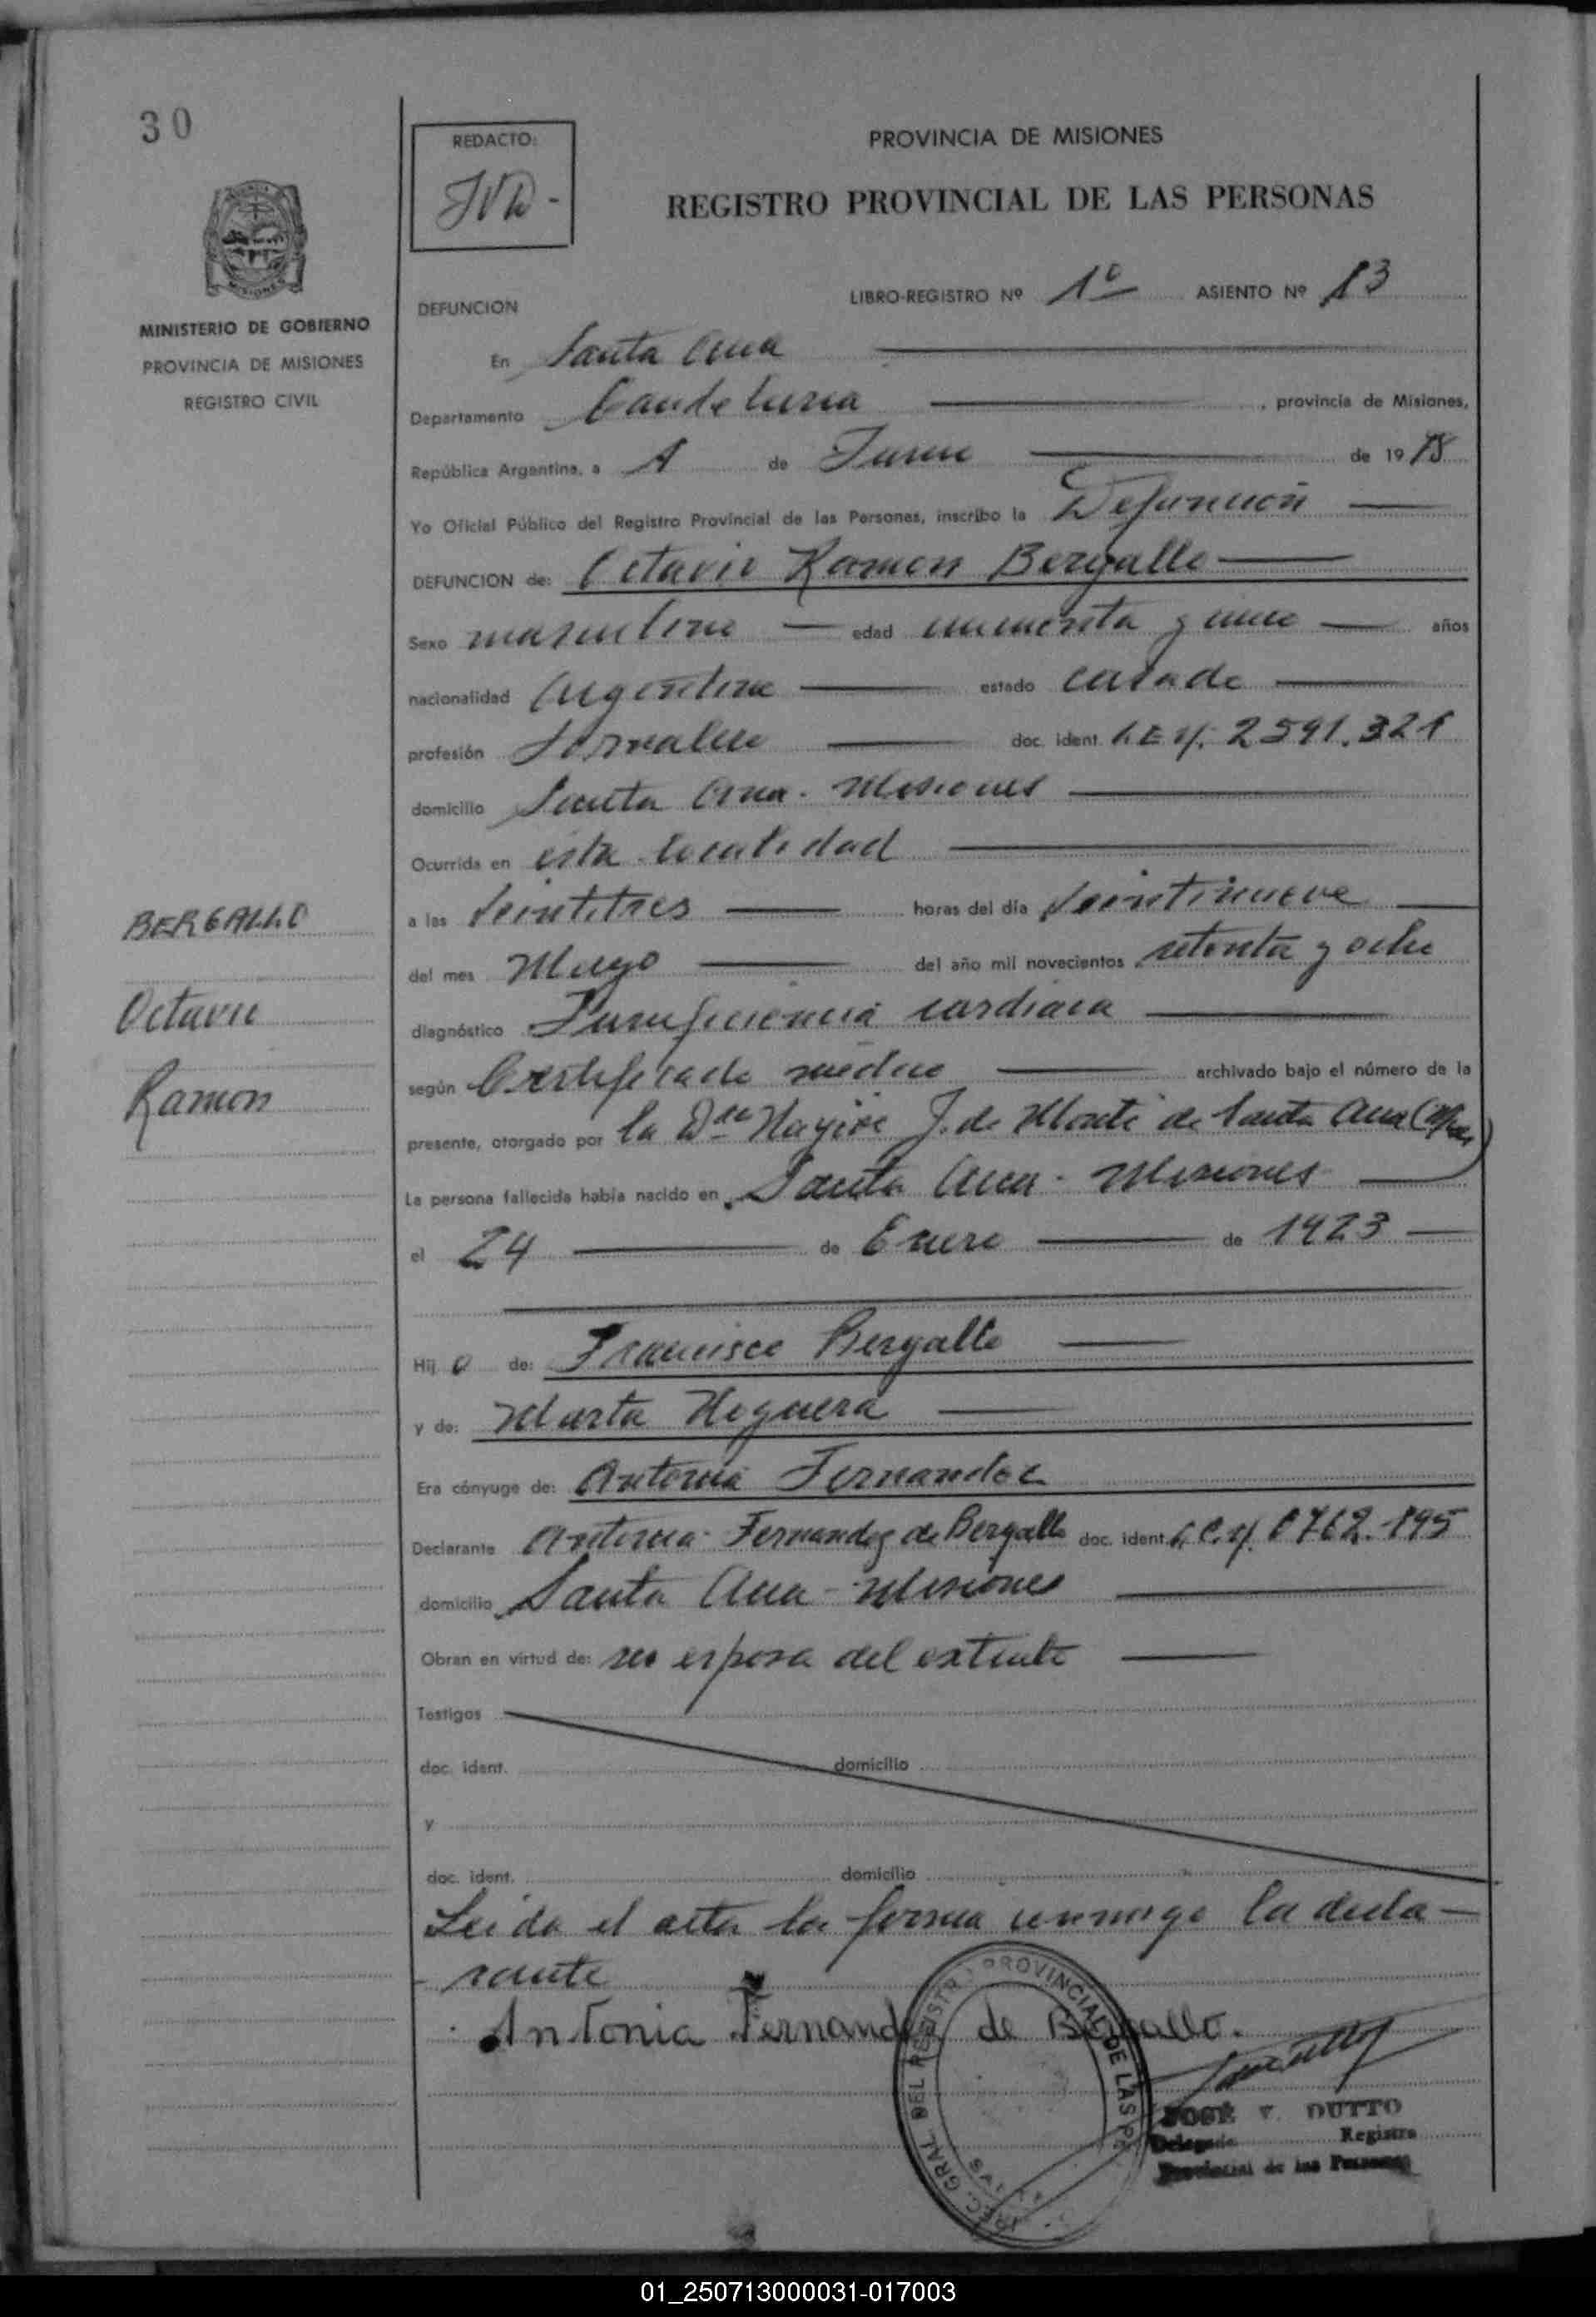 30
REDACTO:
PROVINCIA DE MISIONES
REGISTRO PROVINCIAL DE LAS PERSONAS
MISIONES
MINISTERIO DE GOBIERNO
PROVINCIA DE MISIONES
REGISTRO CIVIL
DEFUNCION
LIBRO-REGISTRO Nº 1º ASIENTO Nº 13
En Santa Ana
Departamento Candelaria, provincia de Misiones,
República Argentina, a 1 de Junio de 1978
Yo Oficial Público del Registro Provincial de las Personas, inscribo la Defunción
DEFUNCION de: Octavio Ramon Bergallo
Sexo masculino edad cincuenta y cinco años
nacionalidad Argentina estado casado
profesión Jornalero doc. ident. L.E. Nº 2591.321
domicilio Santa Ana - Misiones
Ocurrida en esta localidad
a las Veintitres horas del día Veintinueve
del mes Mayo del año mil novecientos setenta y ocho
diagnóstico Insuficiencia cardiaca
según Certificado medico archivado bajo el número de la
presente, otorgado por la Dra J. de Monte de Santa Ana (Mnes)
La persona fallecida había nacido en Santa Ana - Misiones
el 24 de Enero de 1923
BERGALLO
Octavio
Ramon
Hijo de: Francisco Bergallo
y de: Marta Noguera
Era cónyuge de: Antonia Fernandez
Declarante Antonia Fernandez de Bergallo doc. ident. L.C. Nº 0762.195
domicilio Santa Ana - Misiones
Obran en virtud de: ser esposa del extinto
Testigos
doc. ident. domicilio
y
doc. ident. domicilio
Leida el acta la firma conmigo la decla-
rante
Antonia Fernandez de Bergallo.
DEL REGISTRO PROVINCIAL DE LAS PE
JOSÉ V. DUTTO
Delegado Registro
Provincial de las Personas
01_250713000031-017003